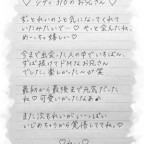 シティ 310のお兄さん♡
ずっとれいのこと気になってくれて
いたみたいで…♡ やっと会えたね、
めっちゃ嬉しい♡
今まで出会った人の中でいちばん、
ずば抜けてドMなお兄さん
でした。楽しかった〜が笑
最初から最後まで元気だった
ね♡可愛いかったなぁ
また次もれいがいーっぱい
いじめちゃうから覚悟しててね。♡
れい♡